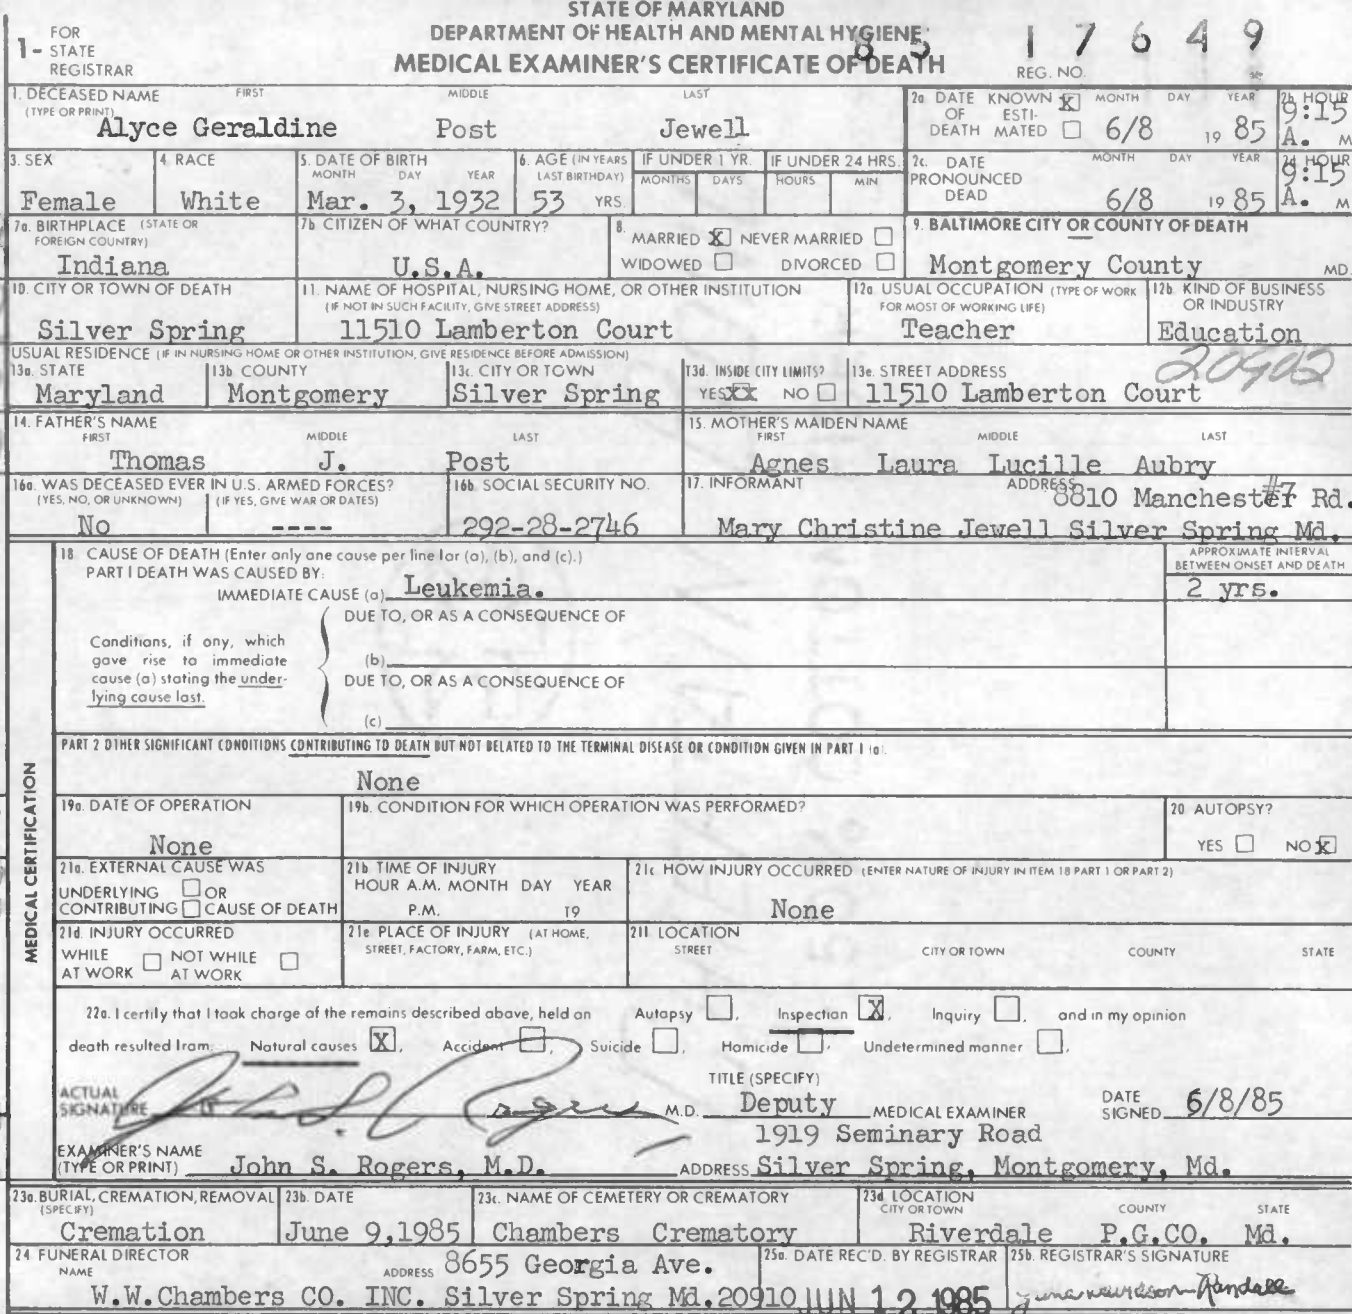 STATE OF MARYLAND
DEPARTMENT OF HEALTH AND MENTAL HYGIENE
MEDICAL EXAMINER'S CERTIFICATE OF DEATH
1- FOR STATE REGISTRAR
85 17649
REG. NO.
1. DECEASED NAME (TYPE OR PRINT) FIRST MIDDLE LAST
Alyce Geraldine Post Jewell
2a DATE OF DEATH KNOWN X ESTIMATED MONTH DAY YEAR 6/8 19 85
2b HOUR 9:15 A. M
3. SEX Female
4. RACE White
5. DATE OF BIRTH MONTH DAY YEAR Mar. 3, 1932
6. AGE (IN YEARS LAST BIRTHDAY) 53 YRS.
IF UNDER 1 YR. MONTHS DAYS
IF UNDER 24 HRS. HOURS MIN
2c. DATE PRONOUNCED DEAD MONTH DAY YEAR 6/8 19 85
2d HOUR 9:15 A. M
7a. BIRTHPLACE (STATE OR FOREIGN COUNTRY) Indiana
7b CITIZEN OF WHAT COUNTRY? U.S.A.
8. MARRIED X NEVER MARRIED WIDOWED DIVORCED
9. BALTIMORE CITY OR COUNTY OF DEATH Montgomery County MD.
10. CITY OR TOWN OF DEATH Silver Spring
11. NAME OF HOSPITAL, NURSING HOME, OR OTHER INSTITUTION (IF NOT IN SUCH FACILITY, GIVE STREET ADDRESS) 11510 Lamberton Court
12a USUAL OCCUPATION (TYPE OF WORK FOR MOST OF WORKING LIFE) Teacher
12b. KIND OF BUSINESS OR INDUSTRY Education
USUAL RESIDENCE (IF IN NURSING HOME OR OTHER INSTITUTION, GIVE RESIDENCE BEFORE ADMISSION)
13a. STATE Maryland
13b COUNTY Montgomery
13c. CITY OR TOWN Silver Spring
13d. INSIDE CITY LIMITS? YES XX NO
13e. STREET ADDRESS 11510 Lamberton Court 20902
14. FATHER'S NAME FIRST MIDDLE LAST
Thomas J. Post
15. MOTHER'S MAIDEN NAME FIRST MIDDLE LAST
Agnes Laura Lucille Aubry
16a. WAS DECEASED EVER IN U.S. ARMED FORCES? (YES, NO, OR UNKNOWN) (IF YES, GIVE WAR OR DATES)
No ----
16b. SOCIAL SECURITY NO. 292-28-2746
17. INFORMANT ADDRESS #7 8810 Manchester Rd.
Mary Christine Jewell Silver Spring Md.
MEDICAL CERTIFICATION
18 CAUSE OF DEATH (Enter only one cause per line for (a), (b), and (c).)
PART I DEATH WAS CAUSED BY:
IMMEDIATE CAUSE (a) Leukemia.
APPROXIMATE INTERVAL BETWEEN ONSET AND DEATH
2 yrs.
DUE TO, OR AS A CONSEQUENCE OF
Conditions, if any, which gave rise to immediate cause (a) stating the underlying cause last.
(b)
DUE TO, OR AS A CONSEQUENCE OF
(c)
PART 2 OTHER SIGNIFICANT CONDITIONS CONTRIBUTING TO DEATH BUT NOT RELATED TO THE TERMINAL DISEASE OR CONDITION GIVEN IN PART 1 (a).
None
19a. DATE OF OPERATION None
19b. CONDITION FOR WHICH OPERATION WAS PERFORMED?
20 AUTOPSY? YES NO X
21a. EXTERNAL CAUSE WAS UNDERLYING OR CONTRIBUTING CAUSE OF DEATH
21b TIME OF INJURY HOUR A.M. MONTH DAY YEAR P.M. 19
21c HOW INJURY OCCURRED (ENTER NATURE OF INJURY IN ITEM 18 PART 1 OR PART 2)
None
21d. INJURY OCCURRED WHILE AT WORK NOT WHILE AT WORK
21e PLACE OF INJURY (AT HOME, STREET, FACTORY, FARM, ETC.)
21f LOCATION STREET CITY OR TOWN COUNTY STATE
22a. I certify that I took charge of the remains described above, held an Autopsy , Inspection X , Inquiry , and in my opinion
death resulted from: Natural causes X , Accident , Suicide , Homicide , Undetermined manner .
ACTUAL SIGNATURE John S. Rogers M.D.
TITLE (SPECIFY) Deputy MEDICAL EXAMINER
DATE SIGNED 6/8/85
1919 Seminary Road
EXAMINER'S NAME (TYPE OR PRINT) John S. Rogers, M.D. ADDRESS Silver Spring, Montgomery, Md.
23a. BURIAL, CREMATION, REMOVAL (SPECIFY) Cremation
23b. DATE June 9,1985
23c. NAME OF CEMETERY OR CREMATORY Chambers Crematory
23d LOCATION CITY OR TOWN COUNTY STATE Riverdale P.G.CO. Md.
24 FUNERAL DIRECTOR NAME ADDRESS 8655 Georgia Ave.
W.W.Chambers CO. INC. Silver Spring Md.20910
25a. DATE REC'D. BY REGISTRAR JUN 12 1985
25b. REGISTRAR'S SIGNATURE Randall